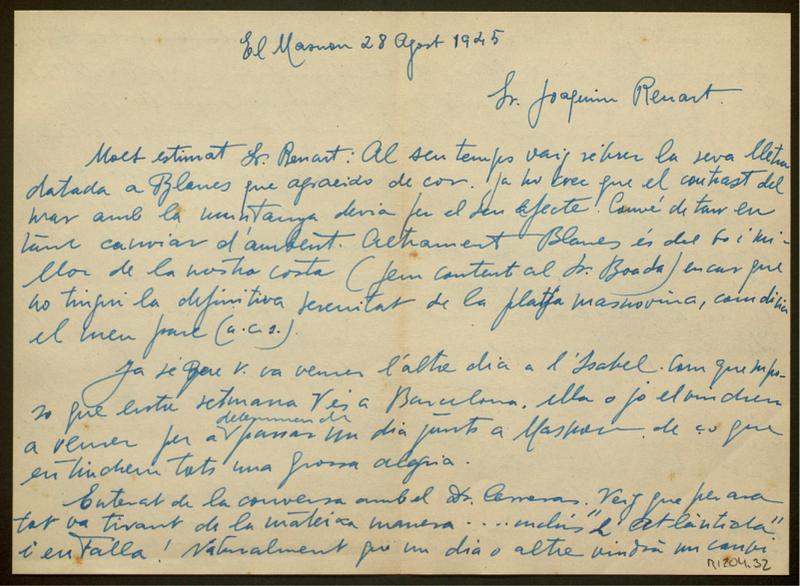 El Masnou 28 Agost 1945
Sr. Joaquim Renart.
Molt estimat Sr. Renart: Al seu temps vaig rebrer la seva lletra
datada a Blanes que agraeido de cor. Ja ho crec que el contrast del
mar amb la muntanya devia fer el seu efecte. Convé de tan en
tant canviar d'ambent. Altrament Blanes és del bo i mi-
llor de la nostra costa (fem content al Sr. Boada) encar que
no tingui la definitiva serenitat de la platja masnovina, com deia
el meu pare (a.c.s.).
Ja sé que V. va veurer l'altre dia a l'Isabel. Com que supo-
so que entre setmana V és a Barcelona, ella o jo el vindrem
a veurer per a determinar de passar un dia junts a Masnou de ço que
en tindrem tots una grossa alegria.
Enterat de la conversa amb el Dr. Carreras. Veig que per ara
tot va tirant de la mateixa manera .... inclús "L'Atlàntida"
i en Falla! Naturalment que un dia o altre vindrà un canvi
R1204.32